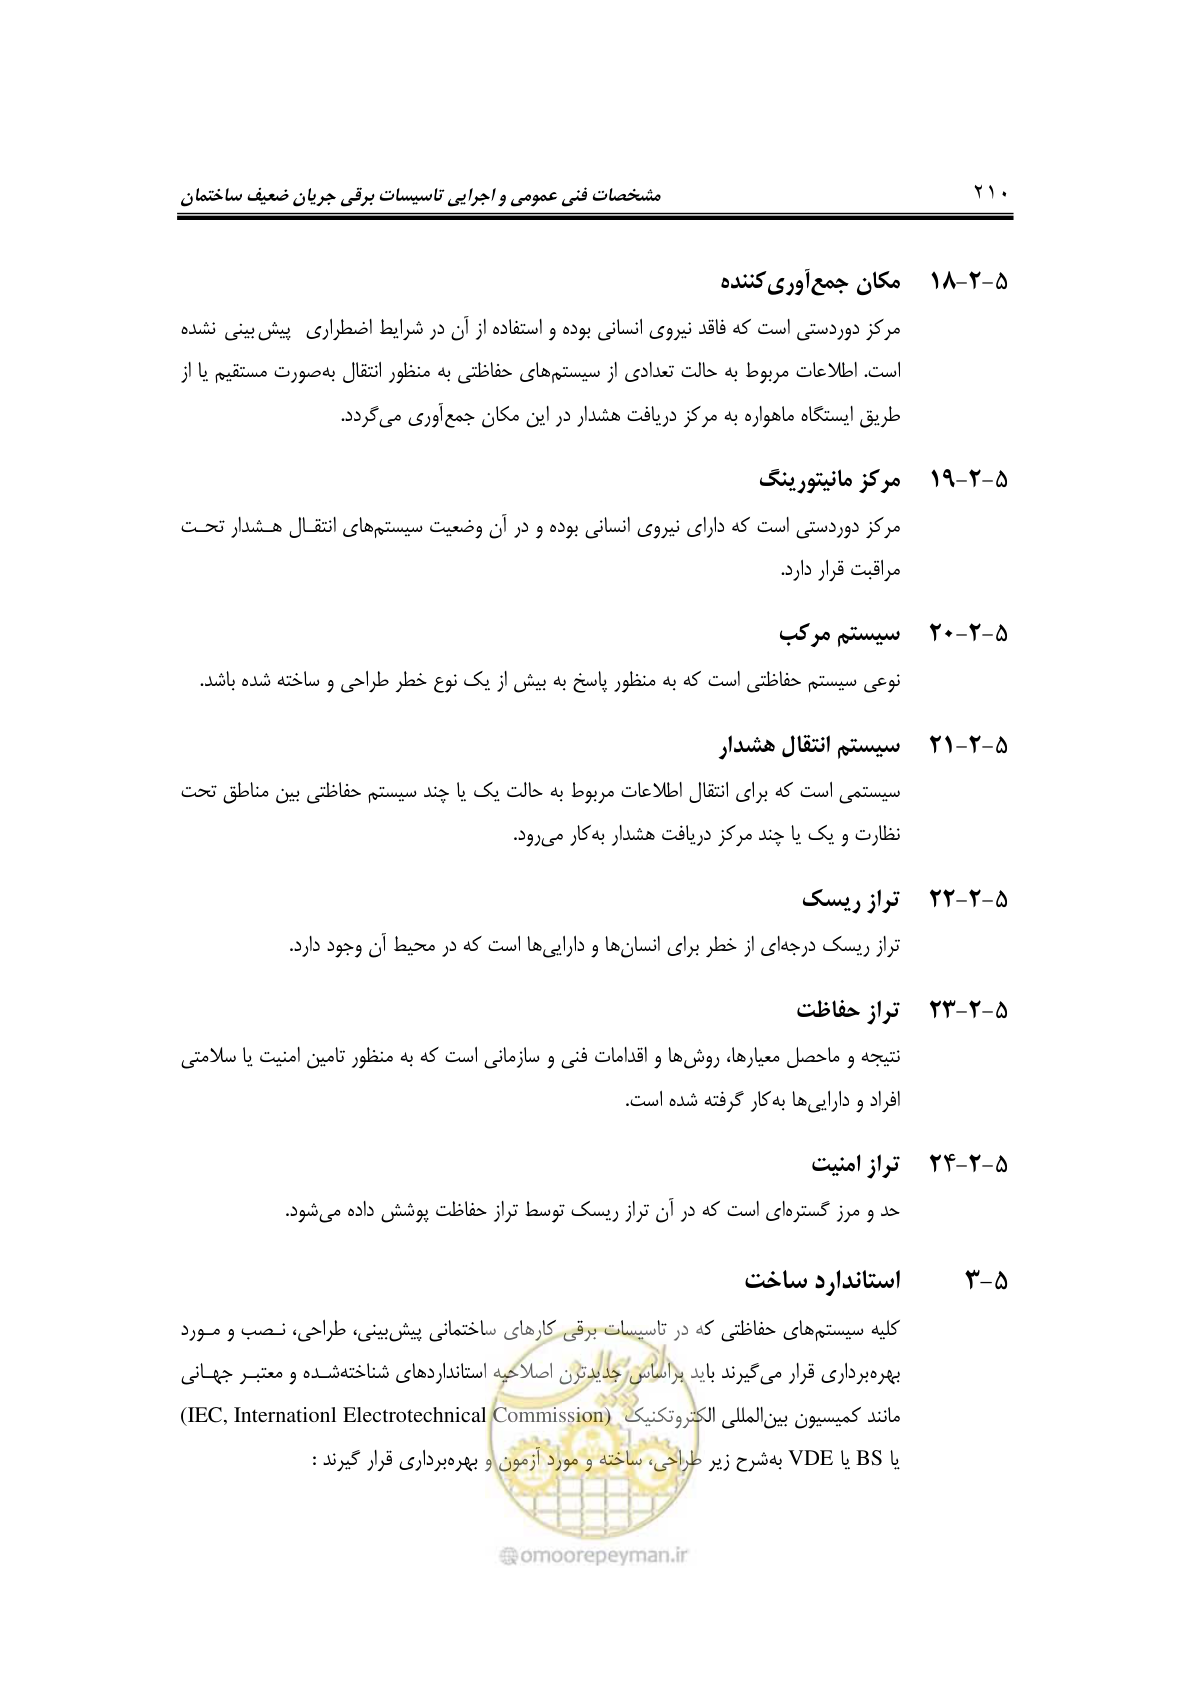 ۲۱۰ مشخصات فنی عمومی و اجرایی تاسیسات برقی جریان ضعیف ساختمان
۵-۲-۱۸ مکان جمع‌آوری‌کننده
مرکز دوردستی است که فاقد نیروی انسانی بوده و استفاده از آن در شرایط اضطراری پیش‌بینی نشده
است. اطلاعات مربوط به حالت تعدادی از سیستم‌های حفاظتی به منظور انتقال به‌صورت مستقیم یا از
طریق ایستگاه ماهواره به مرکز دریافت هشدار در این مکان جمع‌آوری می‌گردد.
۵-۲-۱۹ مرکز مانیتورینگ
مرکز دوردستی است که دارای نیروی انسانی بوده و در آن وضعیت سیستم‌های انتقـال هـشدار تحـت
مراقبت قرار دارد.
۵-۲-۲۰ سیستم مرکب
نوعی سیستم حفاظتی است که به منظور پاسخ به بیش از یک نوع خطر طراحی و ساخته شده باشد.
۵-۲-۲۱ سیستم انتقال هشدار
سیستمی است که برای انتقال اطلاعات مربوط به حالت یک یا چند سیستم حفاظتی بین مناطق تحت
نظارت و یک یا چند مرکز دریافت هشدار به‌کار می‌رود.
۵-۲-۲۲ تراز ریسک
تراز ریسک درجه‌ای از خطر برای انسان‌ها و دارایی‌ها است که در محیط آن وجود دارد.
۵-۲-۲۳ تراز حفاظت
نتیجه و ماحصل معیارها، روش‌ها و اقدامات فنی و سازمانی است که به منظور تامین امنیت یا سلامتی
افراد و دارایی‌ها به‌کار گرفته شده است.
۵-۲-۲۴ تراز امنیت
حد و مرز گستره‌ای است که در آن تراز ریسک توسط تراز حفاظت پوشش داده می‌شود.
۵-۳ استاندارد ساخت
کلیه سیستم‌های حفاظتی که در تاسیسات برقی کارهای ساختمانی پیش‌بینی، طراحی، نـصب و مـورد
بهره‌برداری قرار می‌گیرند باید براساس جدیدترن اصلاحیه استانداردهای شناخته‌شـده و معتبـر جهـانی
مانند کمیسیون بین‌المللی الکتروتکنیک (IEC, Internationl Electrotechnical Commission)
یا BS یا VDE به‌شرح زیر طراحی، ساخته و مورد آزمون و بهره‌برداری قرار گیرند :
امور پیمان
@omoorepeyman.ir